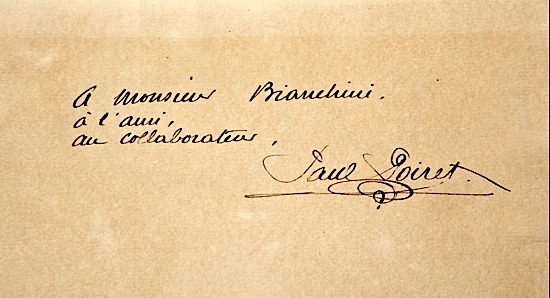 A Monsieur Bianchini.
à l'ami,
au collaborateur,
Paul Poiret.